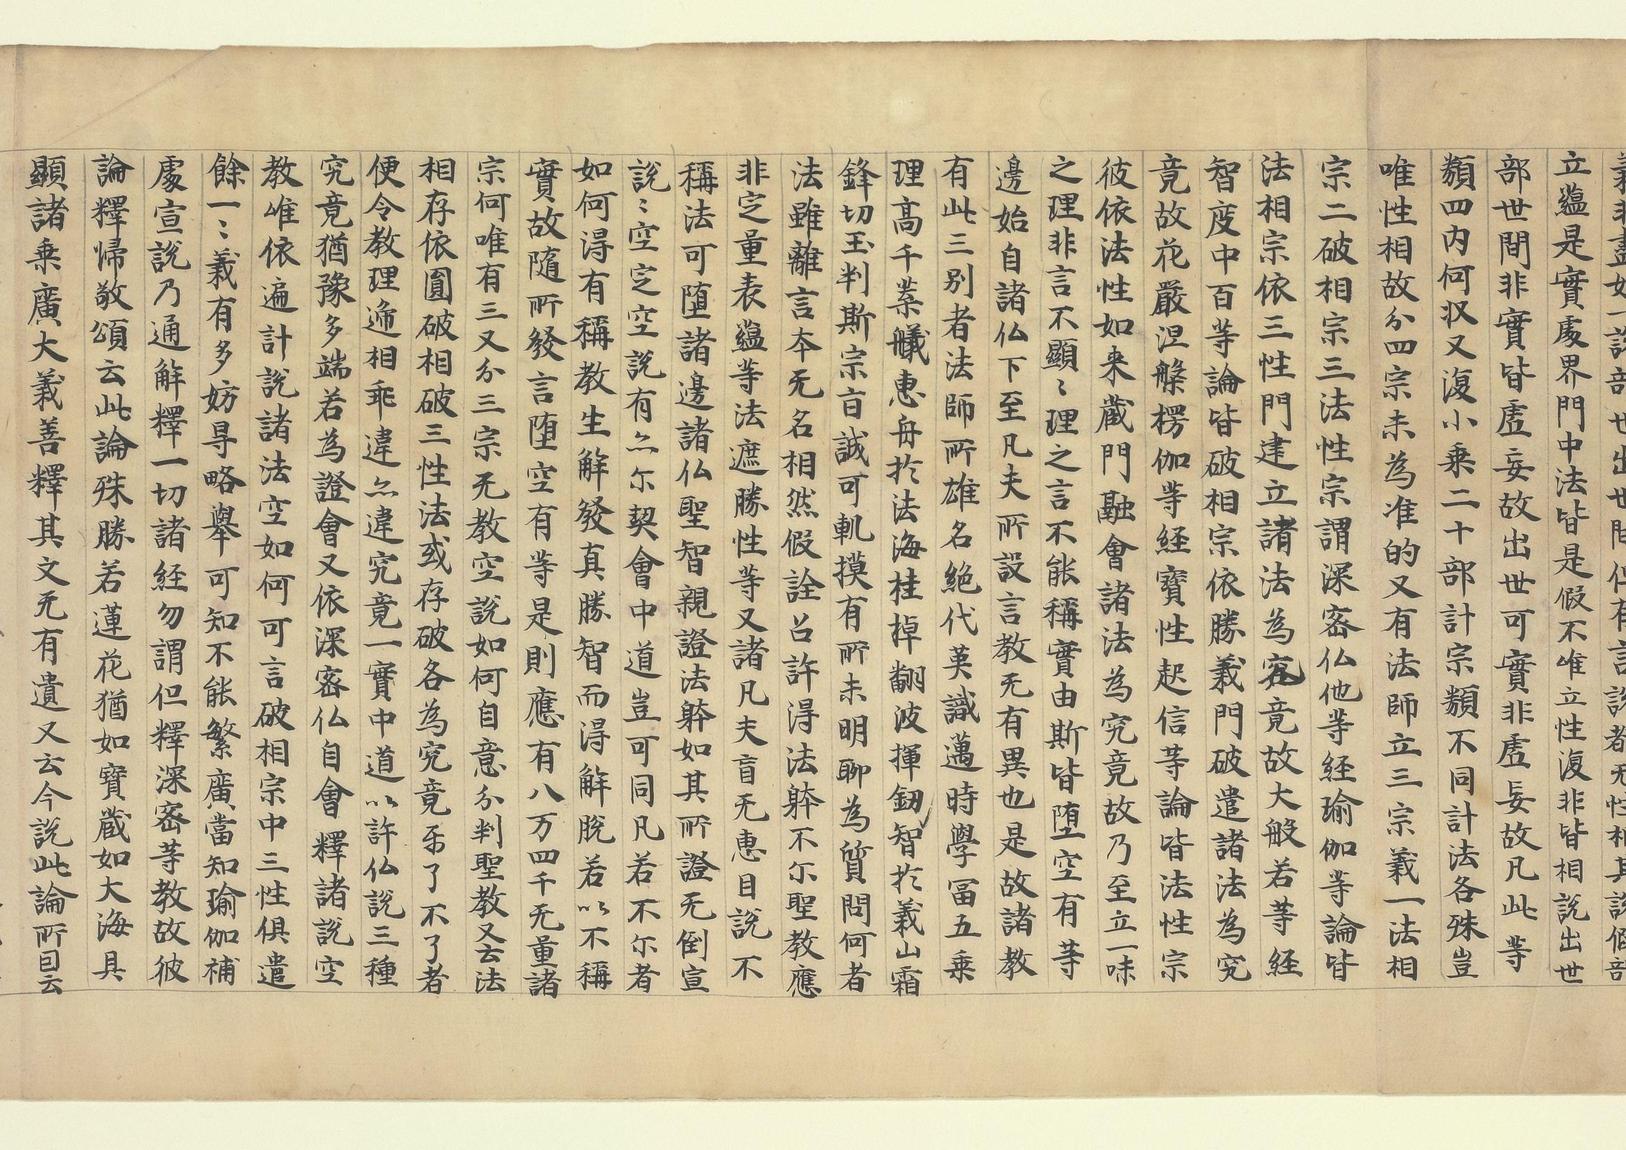 義非盡如一說部世出世間俱有言說都无性相其說假部
立蘊是實處界門中法皆是假不唯立性復非皆相說出世
部世間非實皆虛妄故出世可實非虛妄故凡此等
類四內何収又復小乘二十部計宗類不同計法各殊豈
唯性相故分四宗未為准的又有法師立三宗義一法相
宗二破相宗三法性宗謂深密仏地等經瑜伽等論皆
法相宗依三性門建立諸法為究竟故大般若等經
智度中百等論皆破相宗依勝義門破遣諸法為究
竟故花嚴涅槃楞伽等經寶性起信等論皆法性宗
彼依法性如来藏門融會諸法為究竟故乃至立一味
之理非言不顯〻理之言不能稱實由斯皆墮空有等
邊始自諸仏下至凡夫所設言教无有異也是故諸教
有此三別者法師所雄名絕代英識邁時學冨五乘
理高千葉艤惠舟於法海桂棹翻波揮釰智於義山霜
鋒切玉判斯宗旨誠可軌摸有所未明聊為質問何者
法雖離言本无名相然假詮召許得法躰不尒聖教應
非定量表蘊等法遮勝性等又諸凡夫盲无惠目說不
稱法可墮諸邊諸仏聖智親證法躰如其所證无倒宣
說〻空定空說有亦尒契會中道豈可同凡若不尒者
如何得有稱教生解發真勝智而得解脫若以不稱
實故隨所發言墮空有等是則應有八万四千无量諸
宗何唯有三又分三宗无教空說如何自意分判聖教又云法
相存依圓破相破三性法或存破各為究竟乐了不了者
便令教理遞相乖違亦違究竟一實中道以許仏說三種
究竟猶豫多端若為證會又依深密仏自會釋諸說空
教唯依遍計說諸法空如何可言破相宗中三性俱遣
餘一〻義有多妨尋略舉可知不能繁廣當知瑜伽補
處宣說乃通解釋一切諸經勿謂但釋深密等教故彼
論釋歸敬頌云此論殊勝若蓮花猶如寶藏如大海具
顯諸乘廣大義善釋其文无有遺又云今說此論所曰云